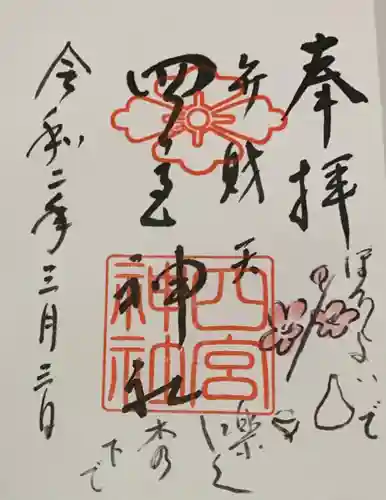 奉拝
弁財天
四宮神社
四宮神社
令和二年三月三日
ほろよいで
楽しく
木の
下で